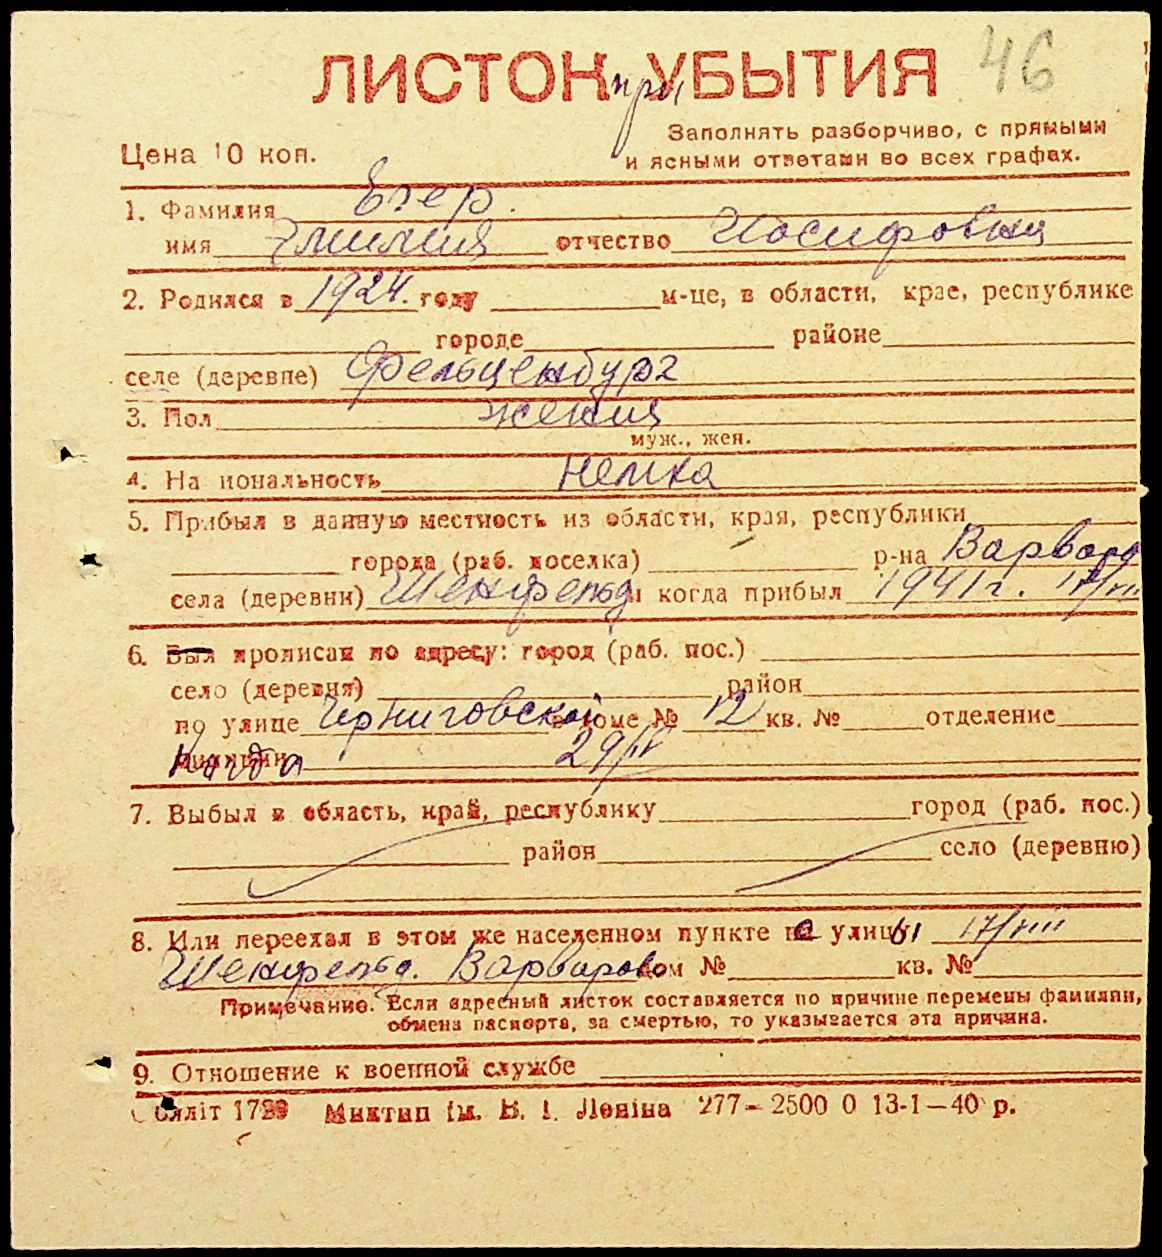 46
ЛИСТОК при УБЫТИЯ
Заполнять разборчиво, с прямыми
Цена 10 коп.
и ясными ответами во всех графах.
1. Фамилия Егер.
имя Эмилия отчество Иосифовна
2. Родился в 1924. году м-це, в области, крае, республике
городе районе
селе (деревне) Фельценбург
3. Пол жения
муж., жен.
4. На иональность Немка
5. Прибыл в данную местность из области, края, республики
города (раб. поселка) р-на Варвар
села (деревни) Шенфельд и когда прибыл 1941г. 17/VIII
6. Был прописан по адресу: город (раб. пос.)
село (деревня) район
по улице Черниговской в доме № 12 кв. № отделение
милиции 29/IV
7. Выбыл в область, край, республику город (раб. пос.)
район село (деревню)
8. Или переехал в этом же населенном пункте на улицу 17/VIII
Шенфельд. Варварово дом № кв. №
Примечание. Если адресный листок составляется по причине перемены фамилии,
обмена паспорта, за смертью, то указывается эта причина.
9. Отношение к военной службе
Обліт 1729 Миктип ім. В. І. Леніна 277–2500 0 13-1–40 р.